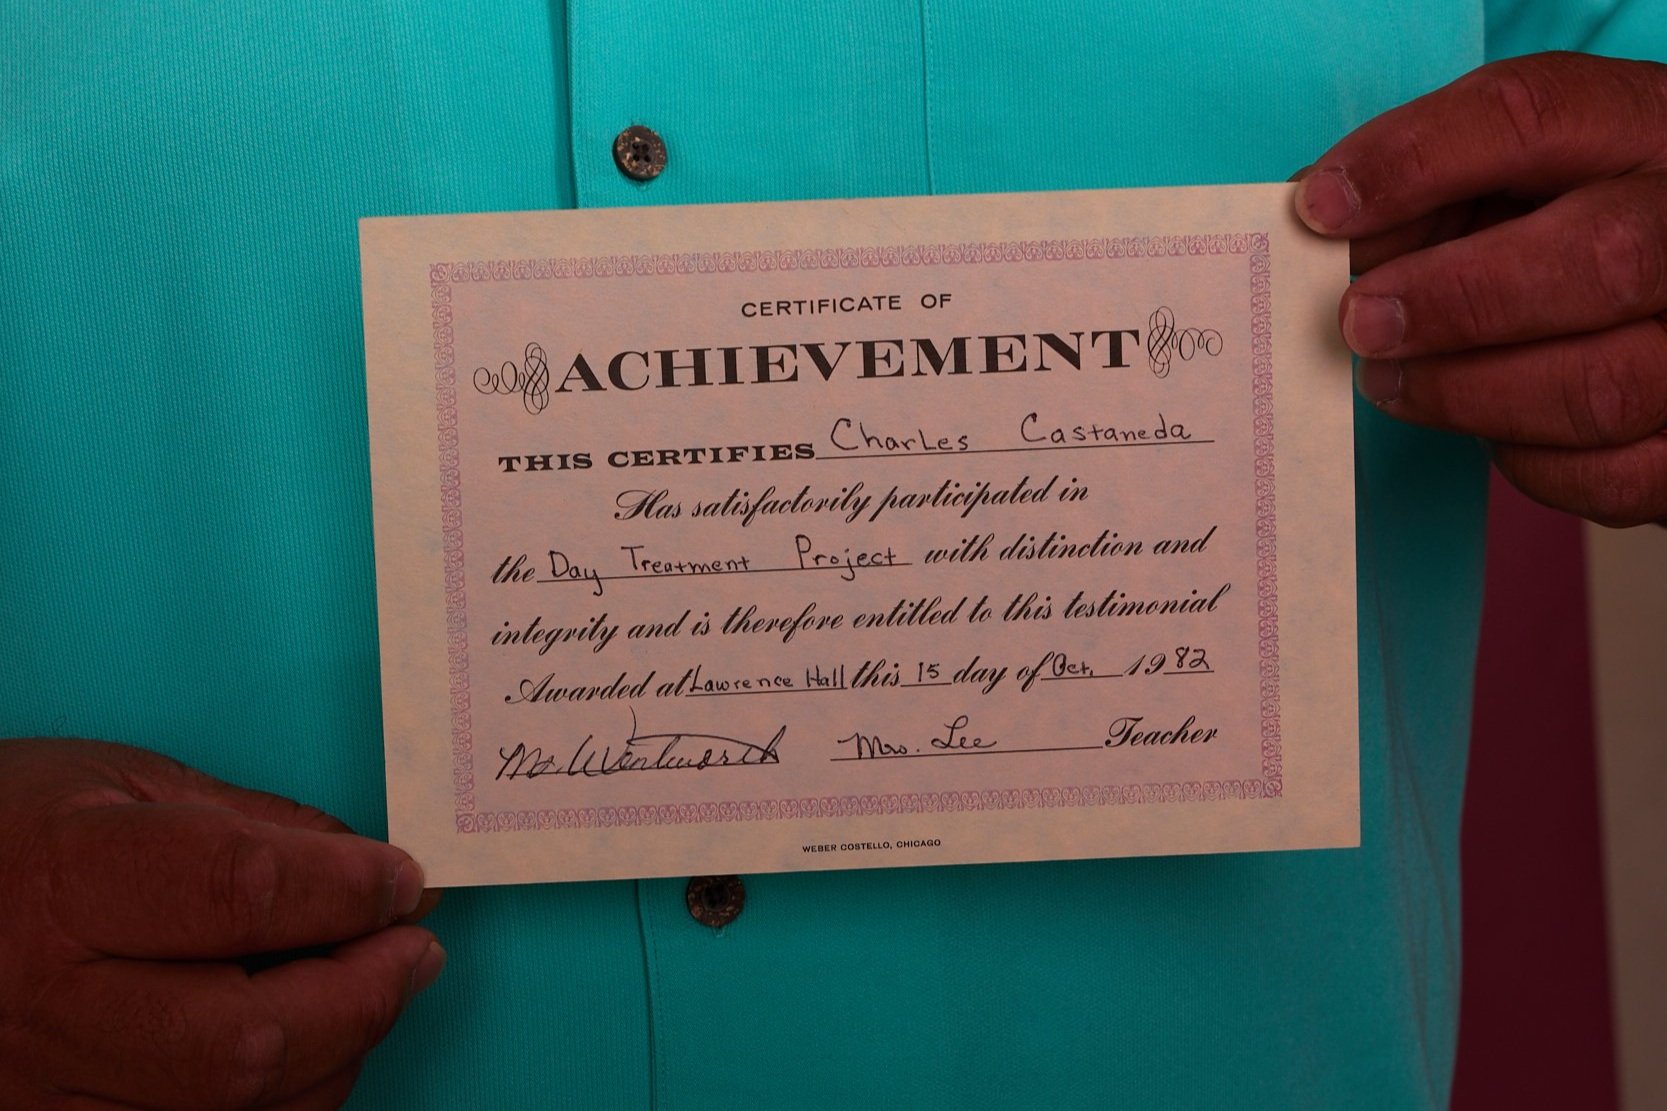 CERTIFICATE OF
ACHIEVEMENT
THIS CERTIFIES Charles Castaneda
Has satisfactorily participated in
the Day Treatment Project with distinction and
integrity and is therefore entitled to this testimonial
Awarded at Lawrence Hall this 15 day of Oct. 1982
Mr. Wentworth Mrs. Lee Teacher
WEBER COSTELLO, CHICAGO